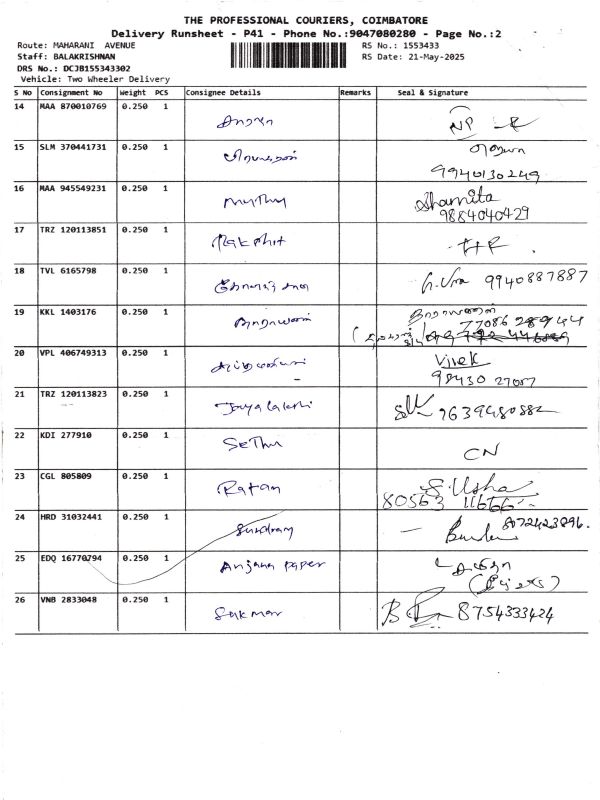 THE PROFESSIONAL COURIERS, COIMBATORE
Delivery Runsheet - P41 - Phone No.:9047080280 - Page No.:2
Route: MAHARANI AVENUE RS No.: 1553433
Staff: BALAKRISHNAN RS Date: 21-May-2025
DRS No.: DCJB155343302
Vehicle: Two Wheeler Delivery
S No Consignment No Weight PCS Consignee Details Remarks Seal & Signature
14 MAA 870010769 0.250 1 NP
15 SLM 370441731 0.250 1
9940130249
16 MAA 945549231 0.250 1 Muthu Sharmita
9884040429
17 TRZ 120113851 0.250 1 Rakshit
18 TVL 6165798 0.250 1 9940887887
19 KKL 1403176 0.250 1 நாராயணன் நாராயணன்
77086 28944
20 VPL 406749313 0.250 1 Vivek
98430 27007
21 TRZ 120113823 0.250 1 Jayalakshi 9639480882
22 KDI 277910 0.250 1 Sethu CN
23 CGL 805809 0.250 1 Ratan S. Usha
80563 11666
24 HRD 31032441 0.250 1 Sundram 8072423896.
25 EDQ 16770794 0.250 1 Anjana paper
26 VNB 2833048 0.250 1 Sukmar 8754333424